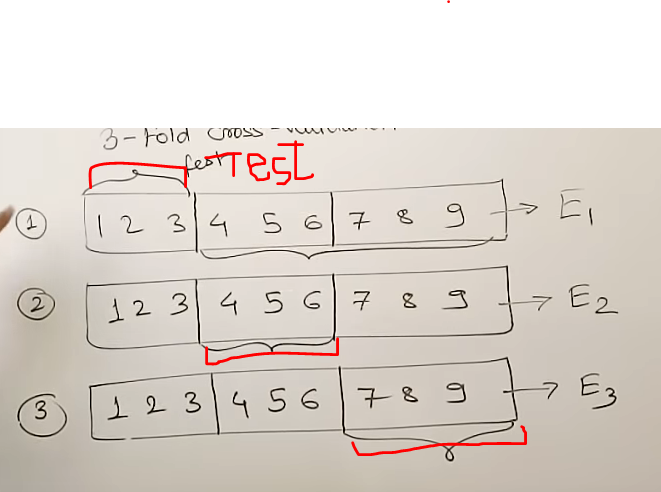 3-fold cross-validation
test Test
1 1 2 3 4 5 6 7 8 9 → E1
2 1 2 3 4 5 6 7 8 9 → E2
3 1 2 3 4 5 6 7 8 9 → E3